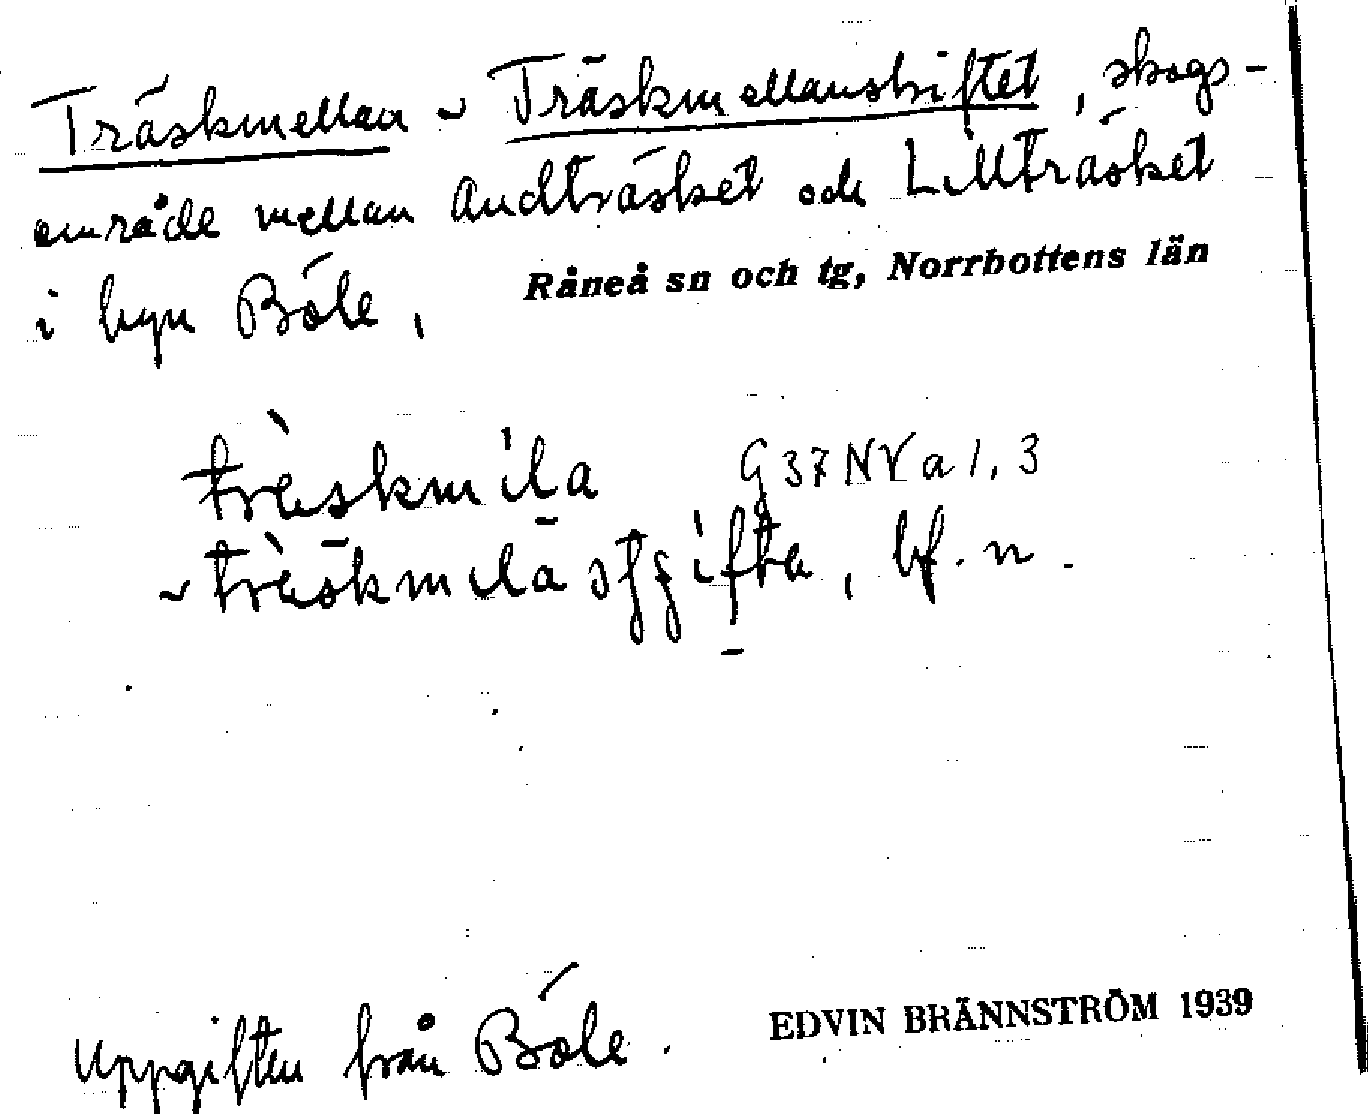 Träskmellan ~ Träskmellanskiftet, skogs-
område mellan Andträsket och Lillträsket
i byn Böle, Råneå sn och tg, Norrbottens län
G37NVa1,3
, bf. n.
Uppgiften från Böle. EDVIN BRÄNNSTRÖM 1939